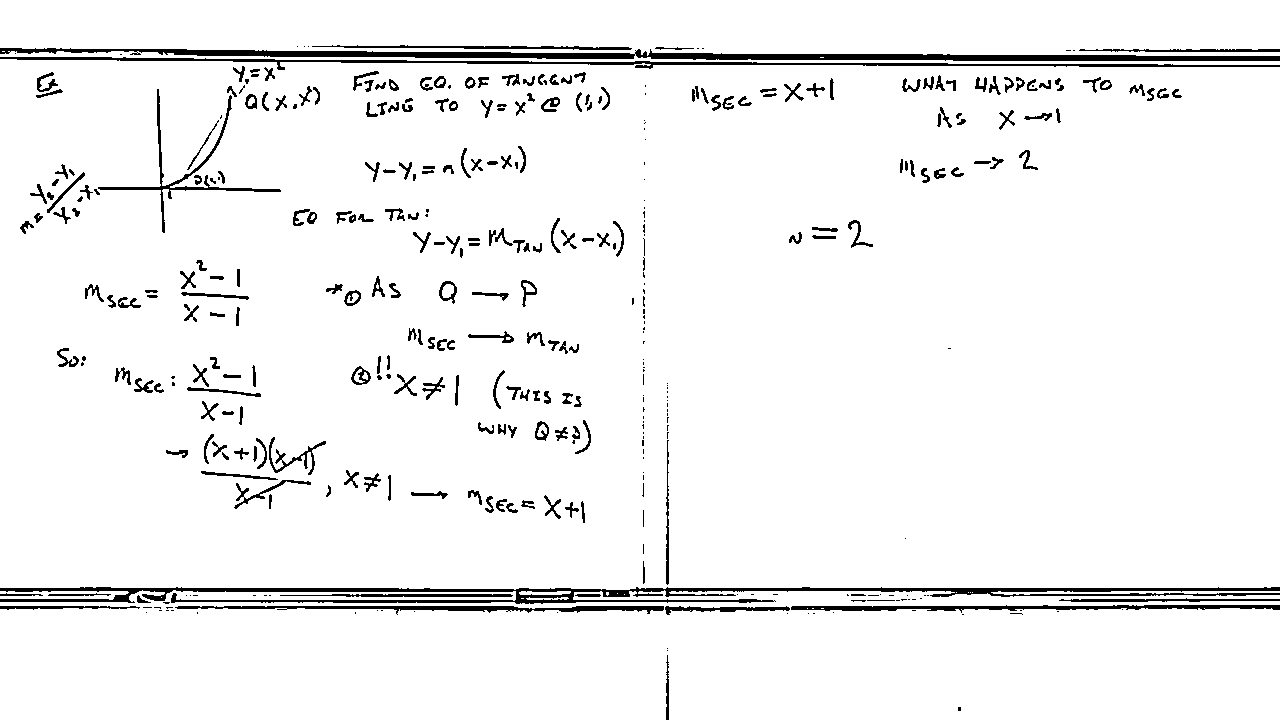 Ex
y=x²
Q(x,x²)
P(1,1)
1
m = y₂-y₁/x₂-x₁
FIND EQ. OF TANGENT
LINE TO y=x² @ (1,1)
y-y₁=m(x-x₁)
EQ FOR TAN:
y-y₁=m_TAN(x-x₁)
m_SEC = x²-1/x-1
* ① AS Q → P
m_SEC → m_TAN
SO:
m_SEC : x²-1/x-1
② !! x≠1 (THIS IS
WHY Q≠P)
→ (x+1)(x-1)/x-1 , x≠1 → m_SEC = x+1
m_SEC = x+1
WHAT HAPPENS TO m_SEC
AS x→1
m_SEC → 2
= 2